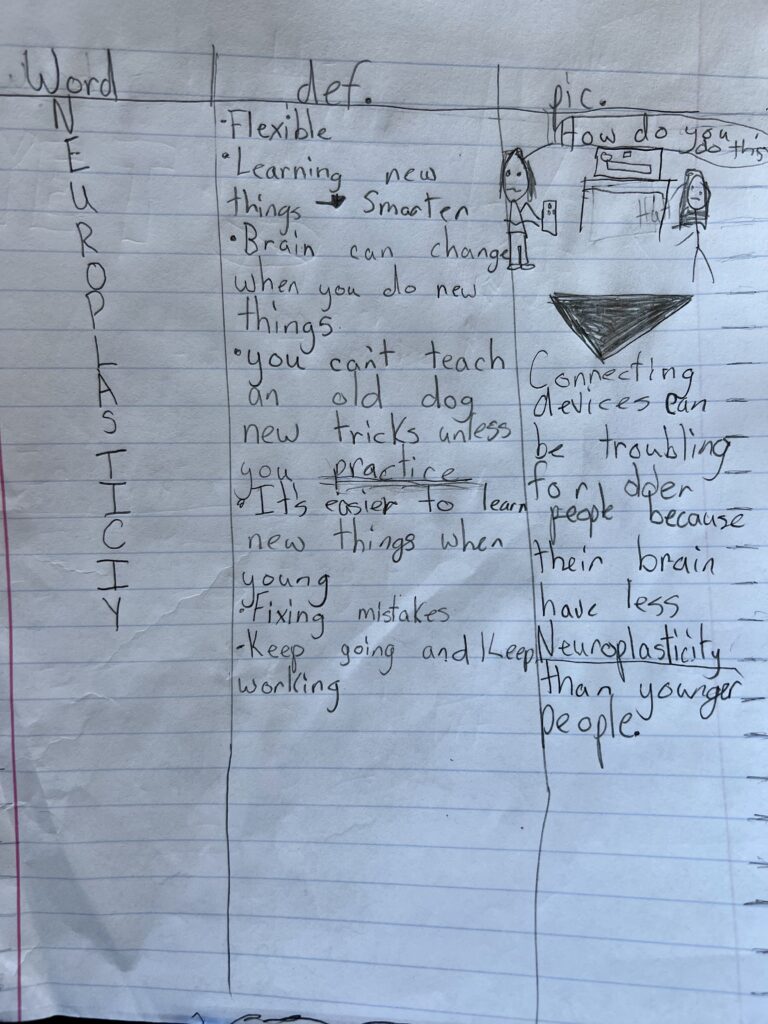 Word
def.
pic.
NEUROPLASTICIY
•Flexible
•Learning new
things → Smarter
•Brain can change
when you do new
things.
•you can't teach
an old dog
new tricks unless
you practice
•It's easier to learn
new things when
young
•Fixing mistakes
-Keep going and Keep
working
How do you
do this
Connecting
devices can
be troubling
for older
people because
their brain
have less
Neuroplasticity
than younger
people.